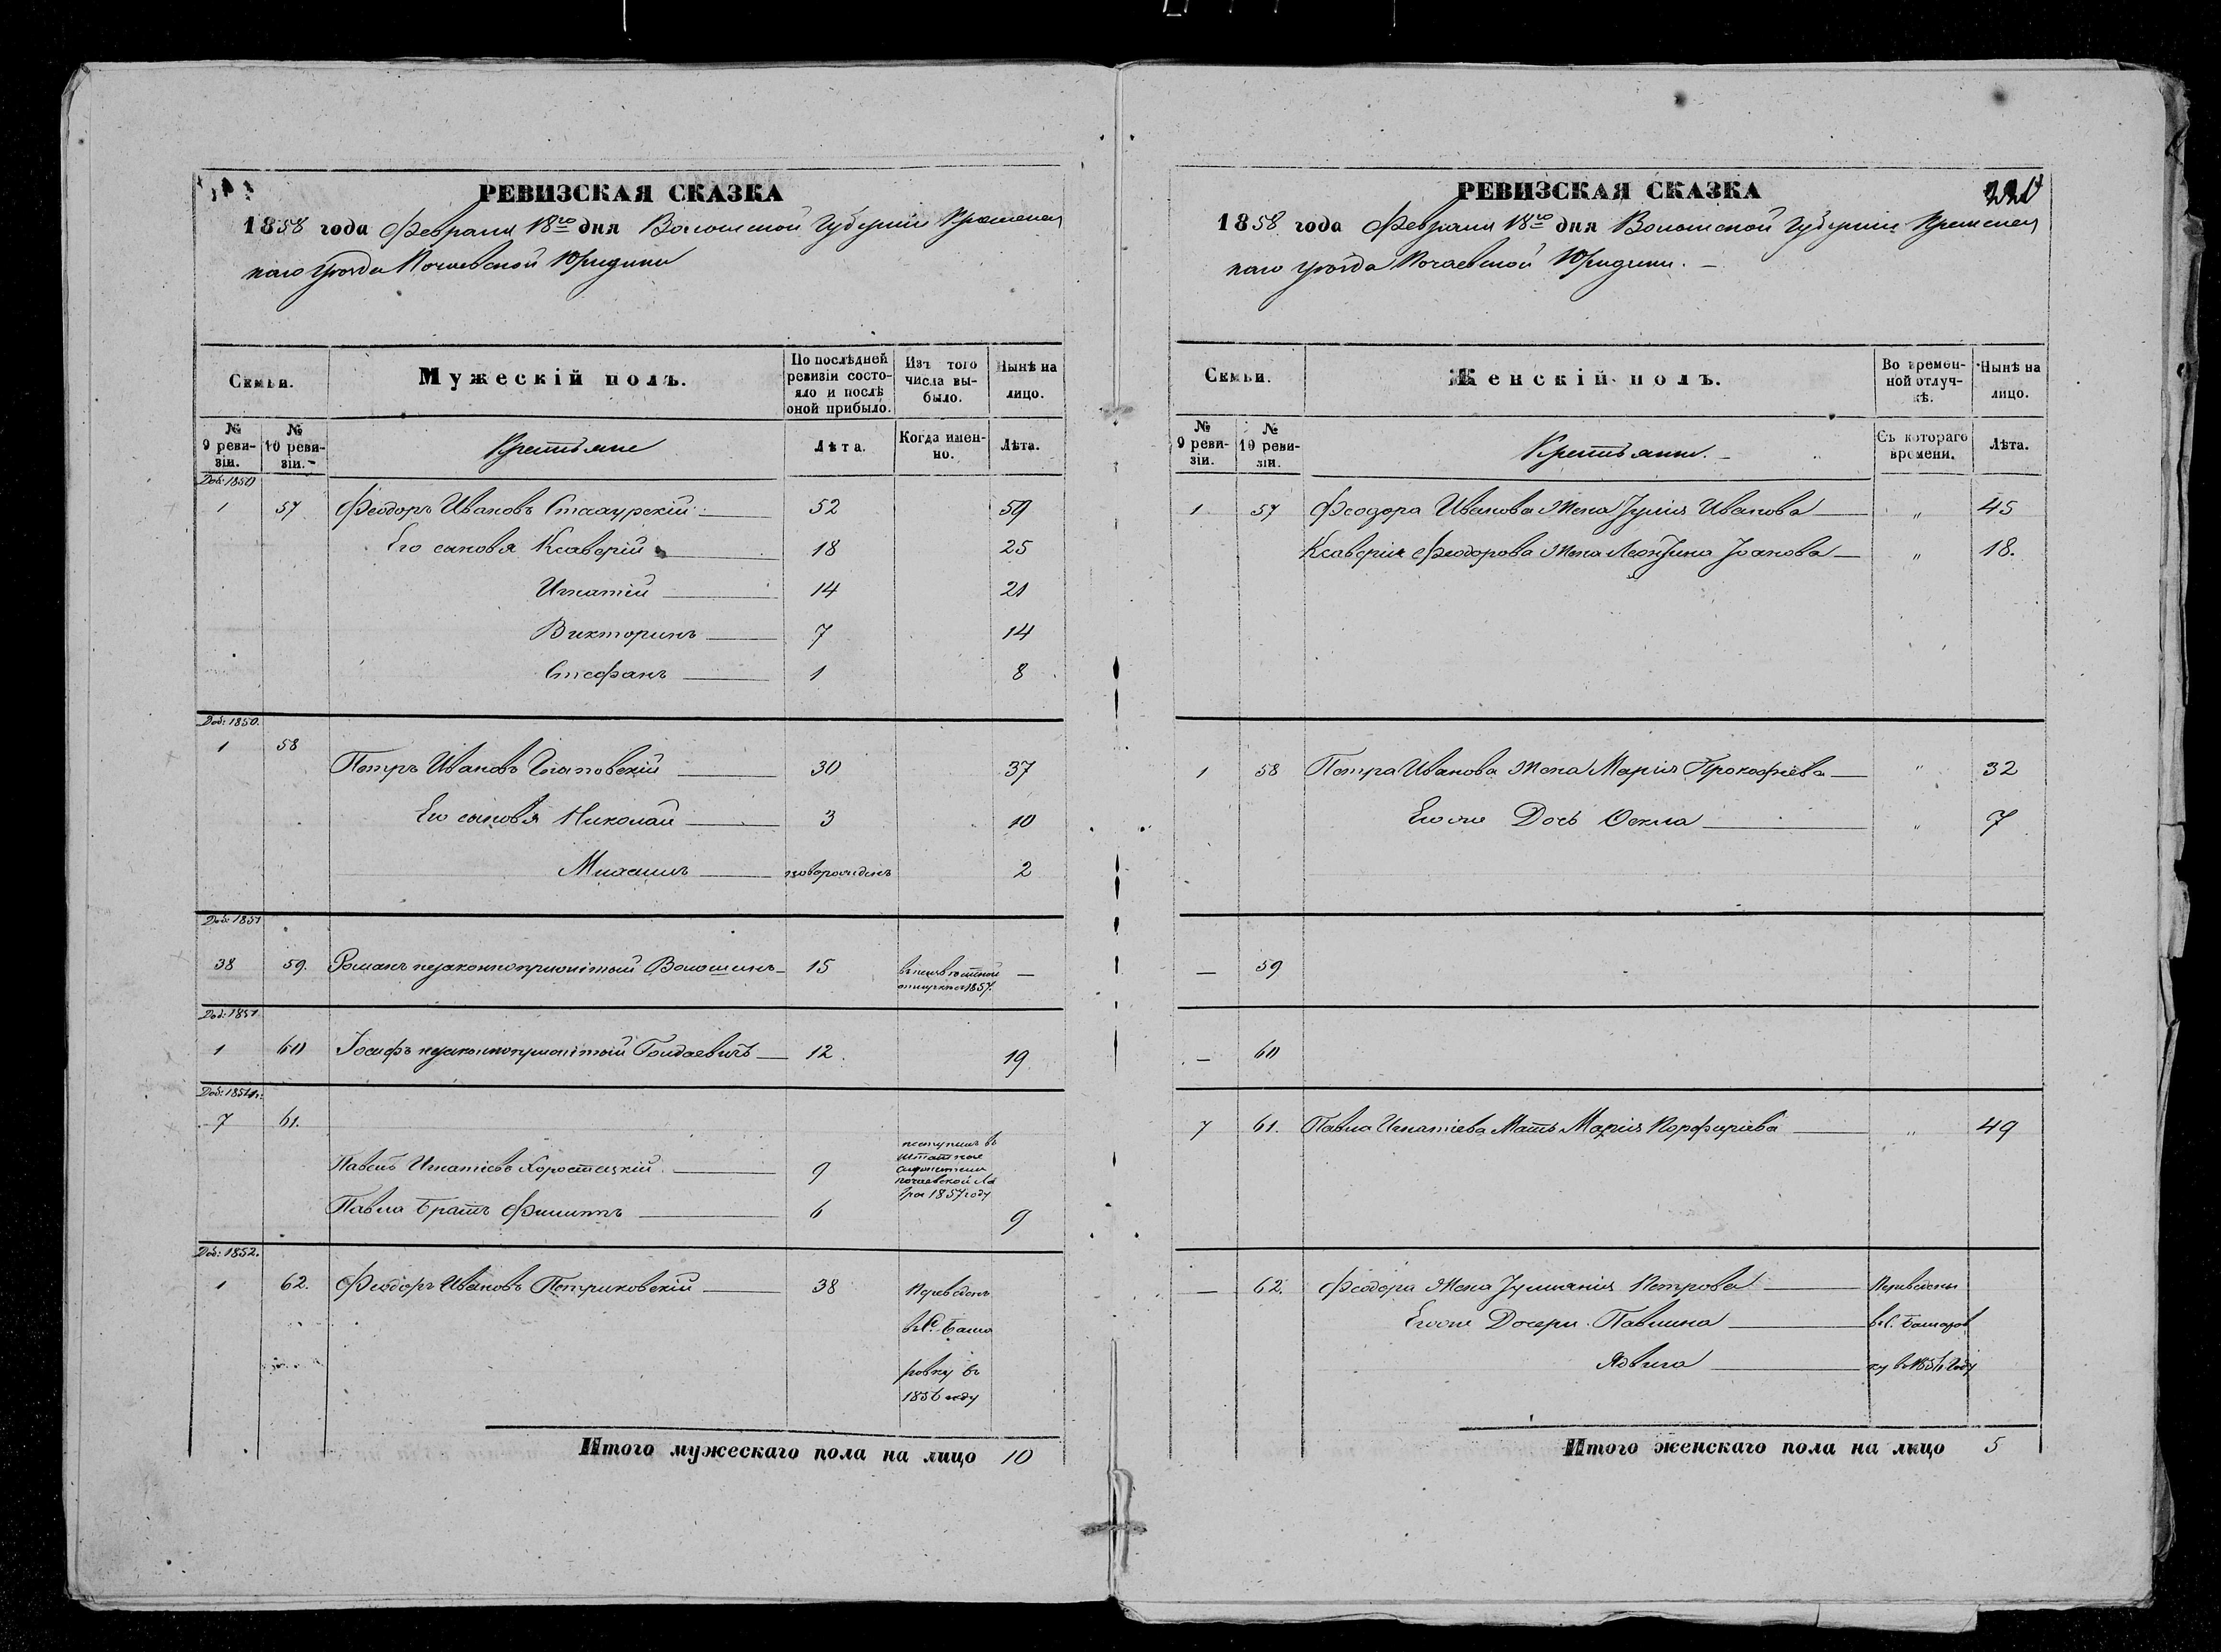 РЕВИЗСКАЯ СКАЗКА
1858 года Февраля 18го дня Волынской Губерніи Кременец
каго уѣзда Почаевской Юридики
Семьи.
Мужескій полъ.
По послѣдней ревизіи состояло и послѣ оной прибыло.
Изъ того числа выбыло.
Нынѣ на лицо.
№ 9 ревизіи.
№ 10 ревизіи.
Крестьяне
Лѣта.
Когда именно.
Лѣта.
Доб: 1850
1 57 Феодоръ Ивановъ 52 59
Его сыновя Ксаверій 18 25
Игнатій 14 21
Викторинъ 7 14
Стефанъ 1 8
Доб: 1850.
1 58
Петръ Ивановъ 30 37
Его сыновя Николай 3 10
Михаилъ новорожденъ 2
Доб: 1851
38 59. Романъ незаконноприжитый Волошинъ 15 въ неизвѣстной отлучкѣ 1857. —
Доб: 1851
1 60 Іосифъ незаконноприжитый Гойдаевичъ 12. 19
Доб: 1851
7 61.
Павелъ Игнатіевъ Хоростецкій 9 поступилъ въ штатные служители почаевской Лавры 1857 году
Павла Братъ Филиппъ 6 9
Доб: 1852.
1 62. Феодоръ Ивановъ Петриковскій 38 Переведенъ
въ С. Башаровку въ 1856 году
Итого мужескаго пола на лицо 10
РЕВИЗСКАЯ СКАЗКА
220
1858 года Февраля 18го дня Волынской Губерніи Кременец
каго уѣзда Почаевской Юридики.
Семьи.
Женскій полъ.
Во временной отлучкѣ.
Нынѣ на лицо.
№ 9 ревизіи.
№ 10 ревизіи.
Крестьянки.
Съ котораго времени.
Лѣта.
1 57 Феодора Иванова Жена Јулія Иванова " 45
Ксаверія Феодорова Жена Јоанова " 18.
1 58 Петра Иванова Жена Марія Прокофіева " 32
Егоже Дочь Оекла " 7
— 59
— 60
7 61. Павла Игнатіева Мать Марія Порфиріева " 49
— 62. Феодора Жена Јуліанія Петрова Переведены
Егоже Дочери Павлина въ С. Башаров
Ядвига ку въ 1856 Году
Итого женскаго пола на лицо 5